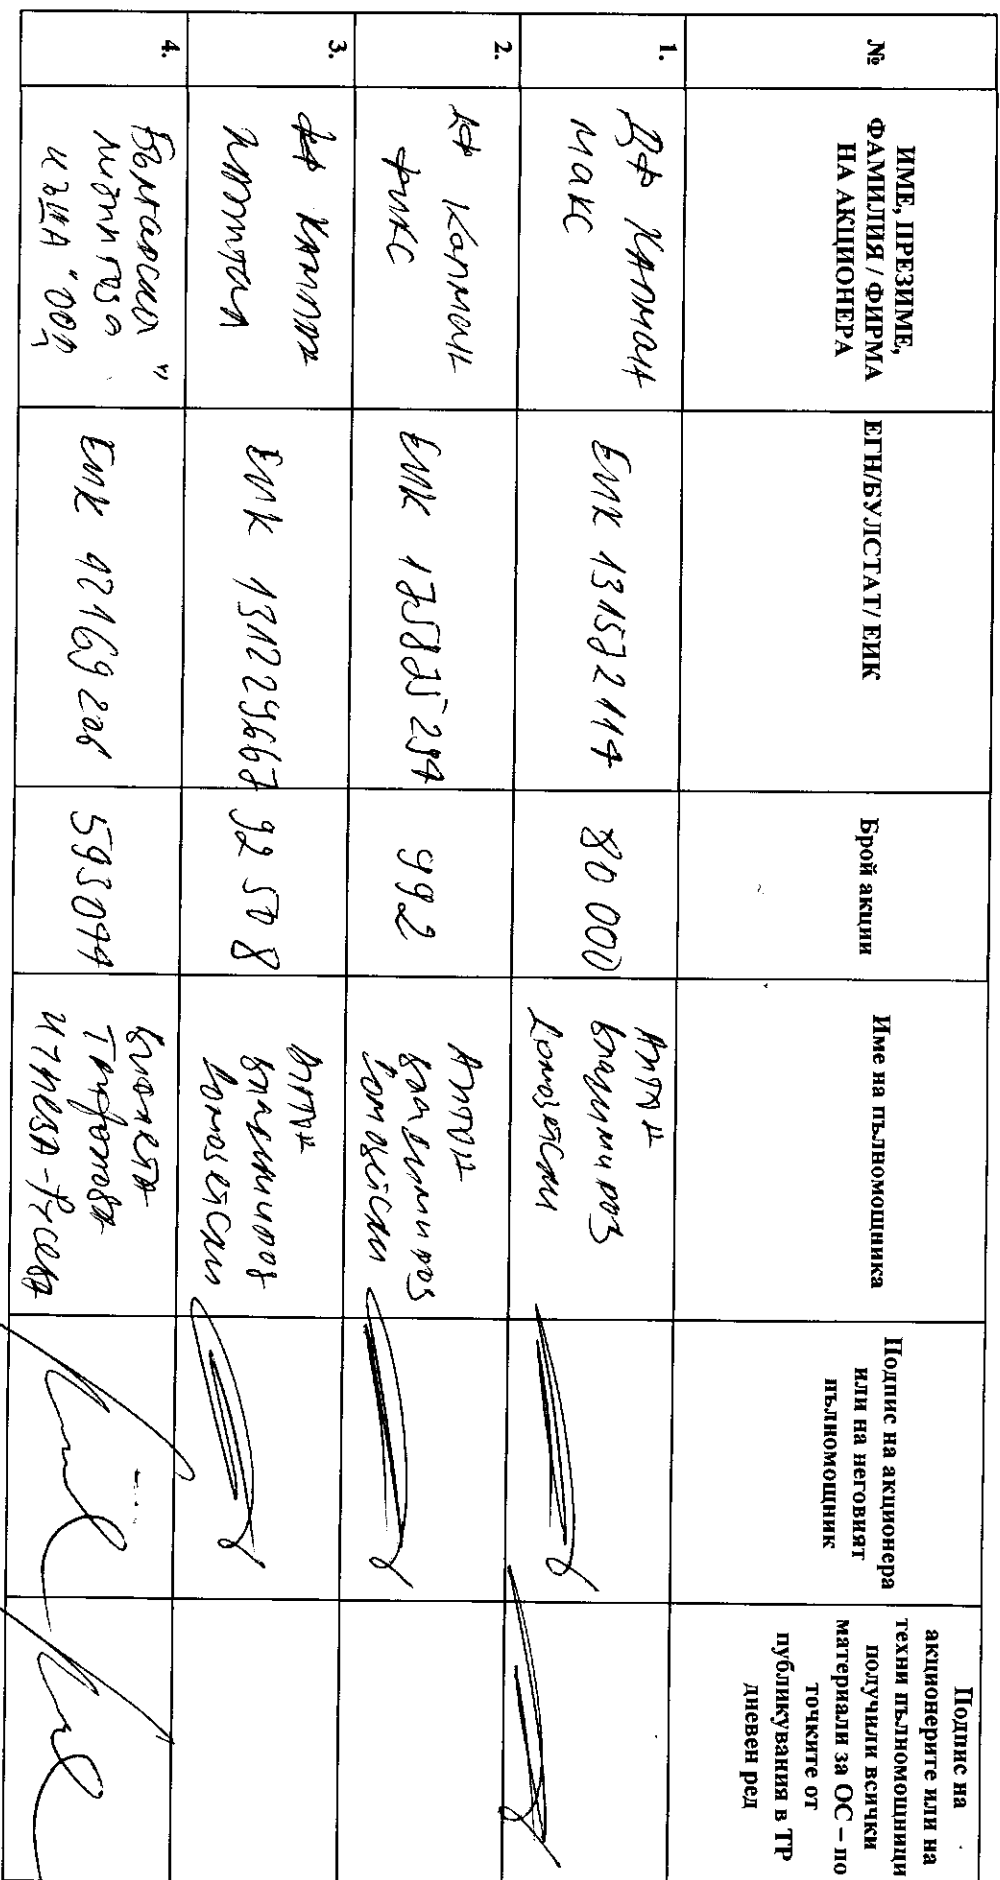 №
ИМЕ, ПРЕЗИМЕ,
ФАМИЛИЯ / ФИРМА
НА АКЦИОНЕРА
ЕГН/БУЛСТАТ/ ЕИК
Брой акции
Име на пълномощника
Подпис на акционера
или на неговият
пълномощник
Подпис на
акционерите или на
техни пълномощници
получили всички
материали за ОС – по
точките от
публикувания в ТР
дневен ред
1.
ДФ Капман
Макс
ЕИК 131572114
80 000
Антон
Владимиров
Домозетски
2.
ДФ Капман
Фикс
ЕИК
992
Антон
Владимиров
Домозетски
3.
ЕИК 131229667
92 508
Антон
Владимиров
Домозетски
4.
Българска
ООД
ЕИК
593074